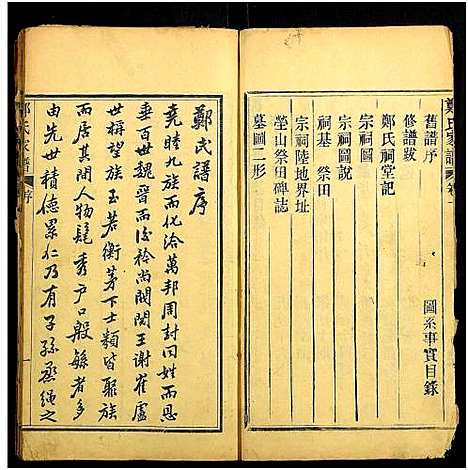 鄭氏家譜 卷
圖系事實目錄
舊譜序
修譜跋
鄭氏祠堂記
宗祠圖
宗祠圖說
宗祠陸地界址
祠基 祭田
塋山祭田碑誌
墓圖二形
鄭氏譜序
堯睦九族而化洽萬邦周封同姓而恩
垂百世魏晉而後衿尚閥閱王謝崔盧
世稱望族玉若衡茅下士類皆聚族
而居其間人物髦秀戶口殷繁者多
由先世積德累仁乃有子孫蒸繩之
鄭氏家譜 序